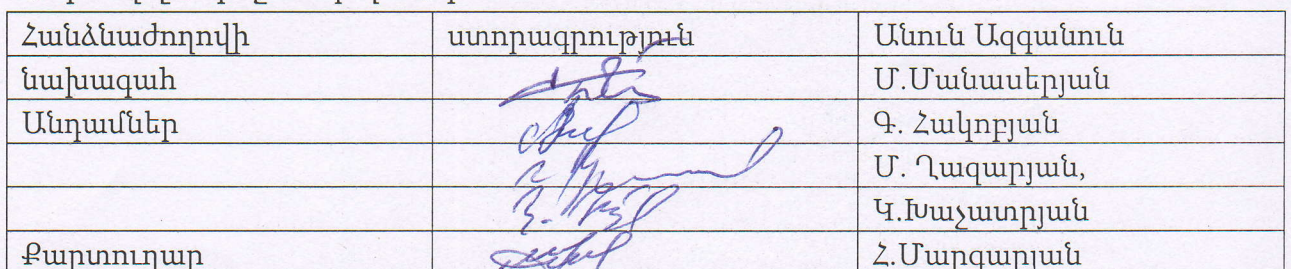 Հանձնաժողովի ստորագրություն Անուն Ազգանուն
նախագահ Մ.Մանասերյան
Անդամներ Գ. Հակոբյան
Մ. Ղազարյան,
Կ.Խաչատրյան
Քարտուղար Հ.Մարգարյան